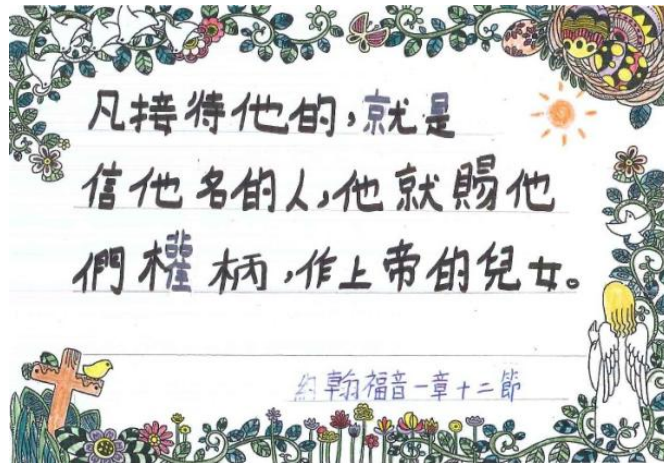 凡接待他的,就是
信他名的人,他就賜他
們權柄,作上帝的兒女。
約翰福音一章十二節